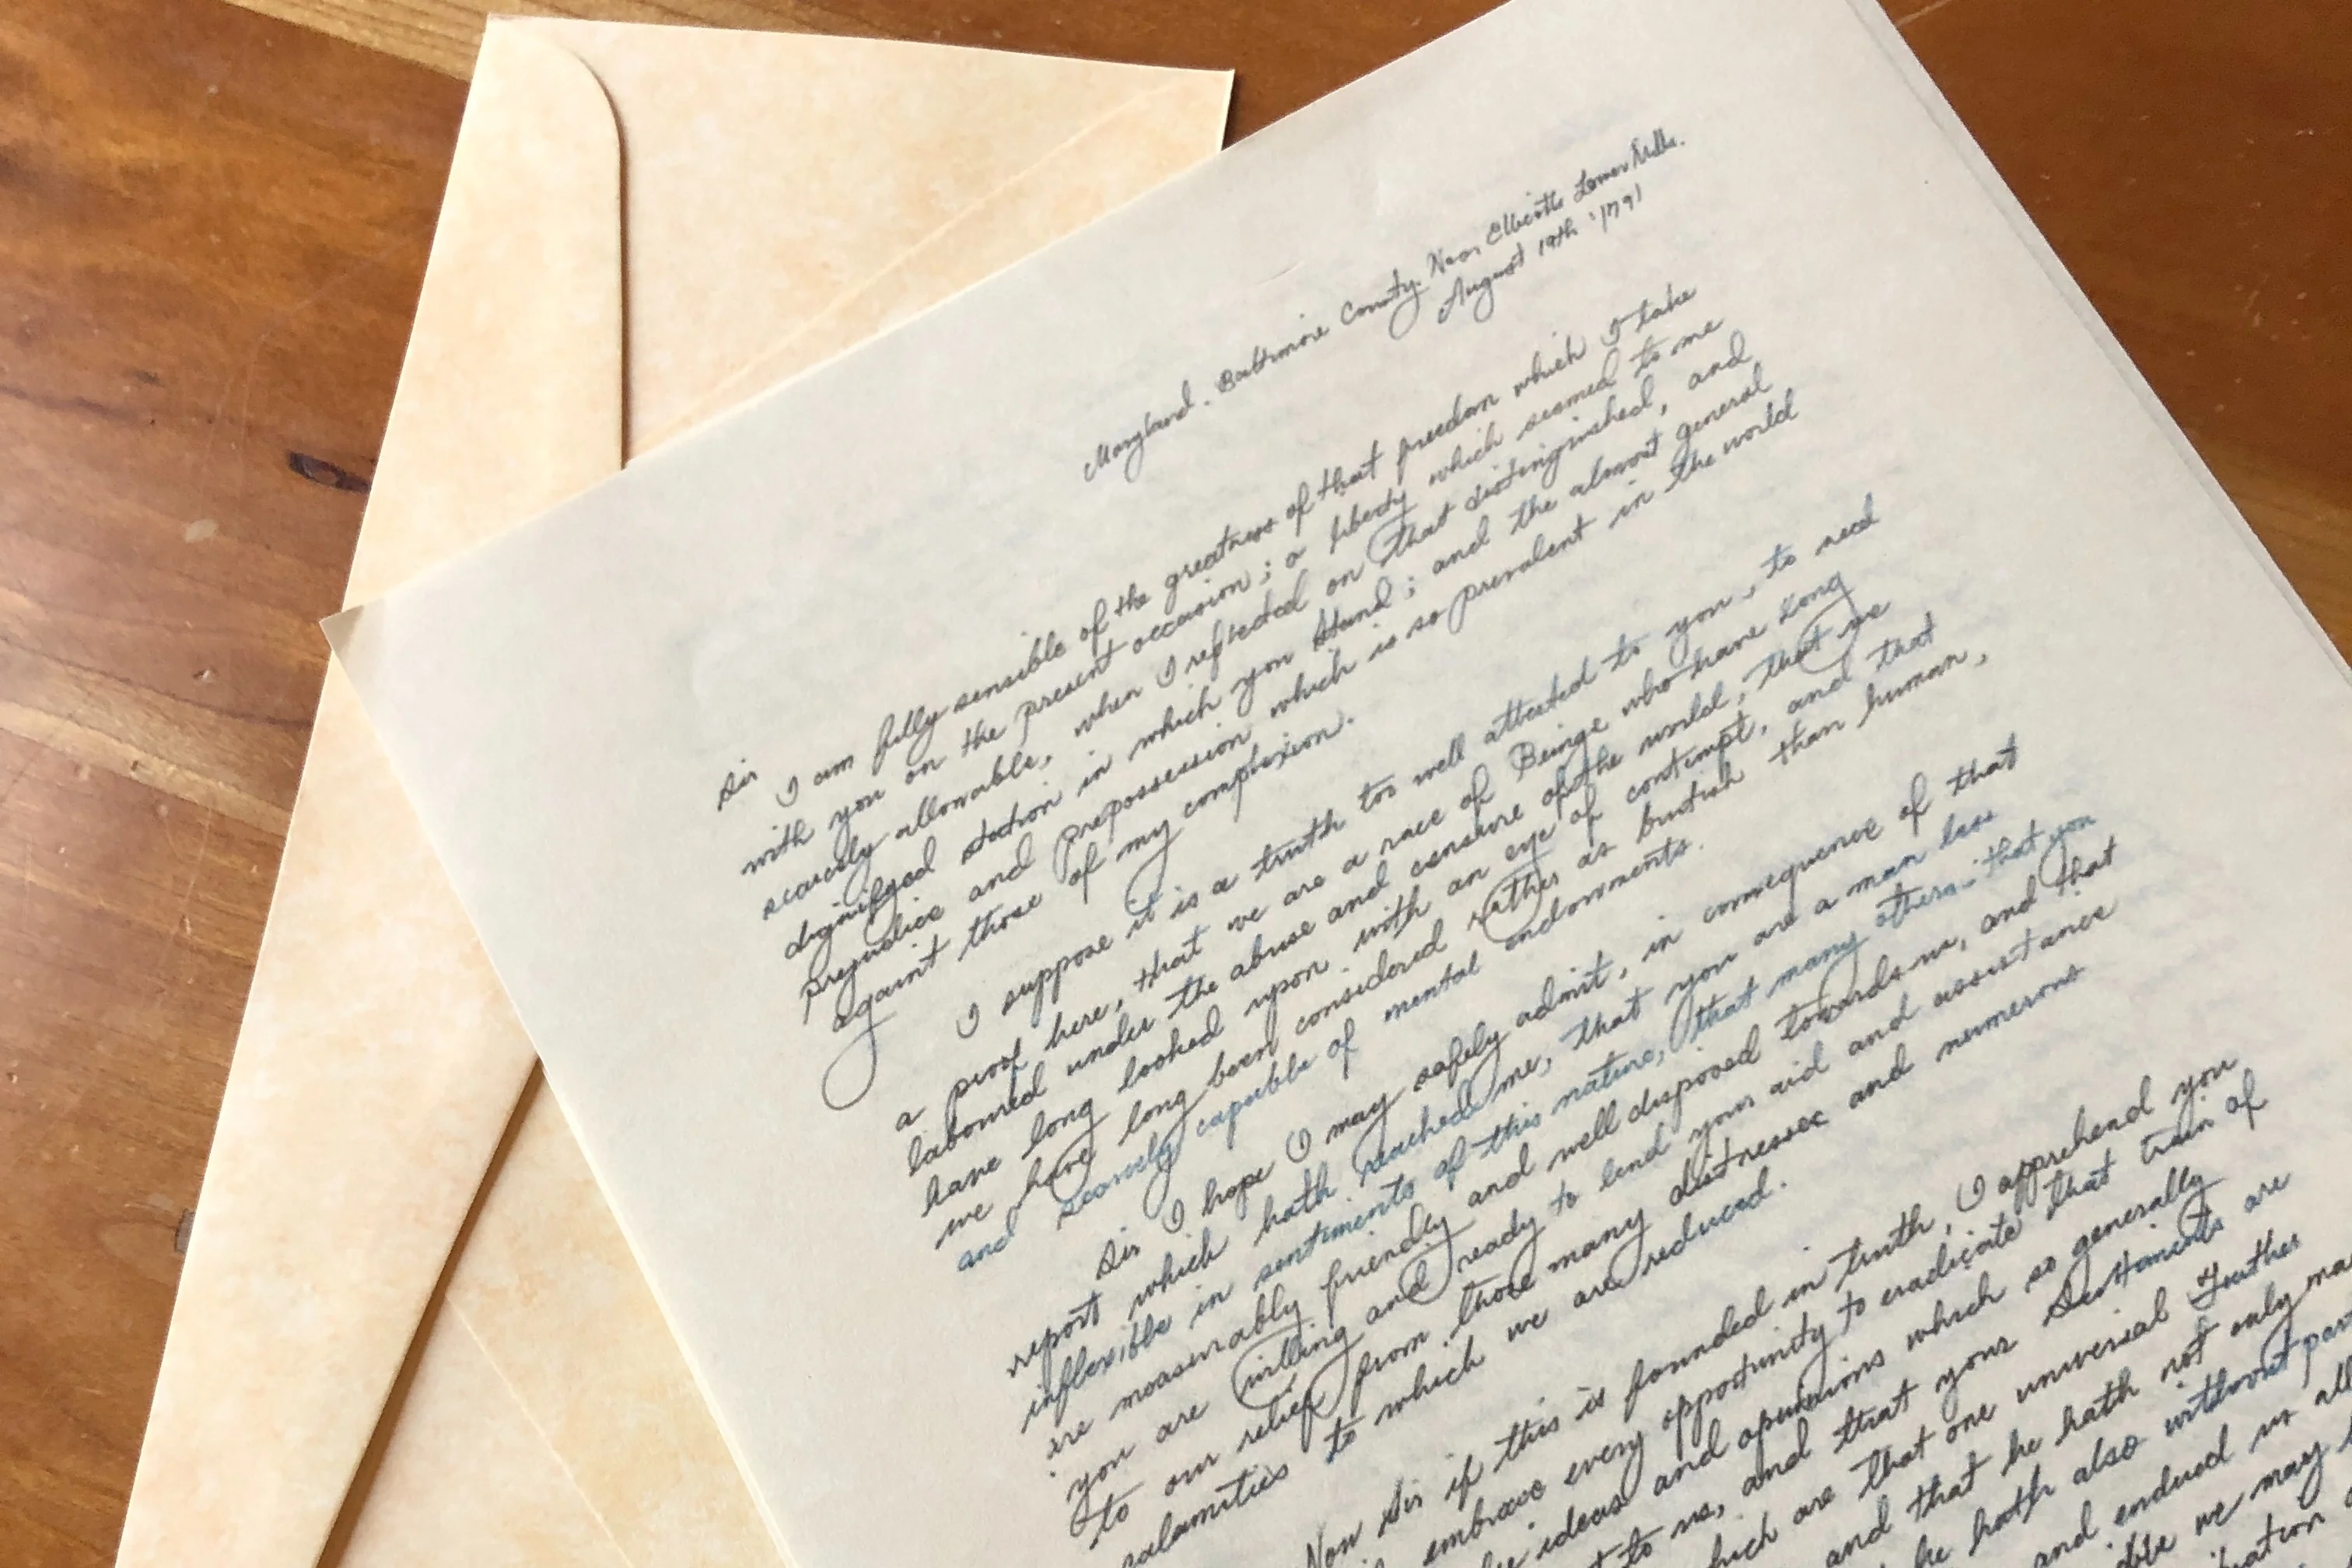 Maryland. Baltimore County. Near Ellicotts Lower Mills.
August 19th 1791
Sir
I am fully sensible of the greatness of that freedom which I take
with you on the present occasion; a liberty which seemed to me
scarcely allowable, when I reflected on that distinguished, and
dignifyed station in which you Stand; and the almost general
prejudice and prepossession which is so prevalent in the world
against those of my complexion.
I suppose it is a truth too well attested to you, to need
a proof here, that we are a race of Beings who have long
laboured under the abuse and censure of the world, that we
have long looked upon with an eye of contempt, and that
we have long been considered rather as brutish than human,
and scarcely capable of mental endowments.
Sir I hope I may safely admit, in consequence of that
report which hath reached me, that you are a man less
inflexible in sentiments of this nature, that many others that you
are measurably friendly and well disposed towards us, and that
you are willing and ready to lend your aid and assistance
to our relief from those many distresses and numerous
calamities to which we are reduced.
Now Sir if this is founded in truth, I apprehend you
embrace every opportunity to eradicate that train of
ideas and opinions which so generally
to us, and that your Sentiments are
which are that one universal Father
and that he hath not only
he hath also without
and endued us all
we may